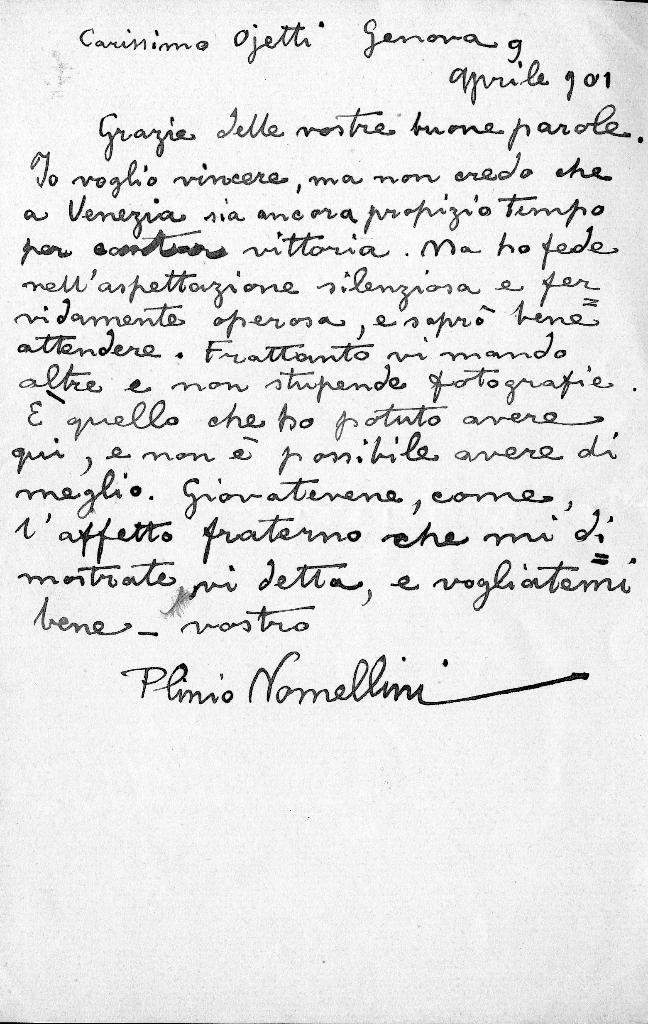 Carissimo Ojetti Genova 9
aprile 901
Grazie delle vostre buone parole.
Io voglio vincere, ma non credo che
a Venezia sia ancora propizio tempo
per cantar vittoria. Ma ho fede
nell'aspettazione silenziosa e fer=
vidamente operosa, e saprò bene
attendere. Frattanto vi mando
altre e non stupende fotografie.
È quello che ho potuto avere
qui, e non è possibile avere di
meglio. Giovatevene, come,
l'affetto fraterno che mi di=
mostrate, vi detta, e vogliatemi
bene - vostro
Plinio Nomellini